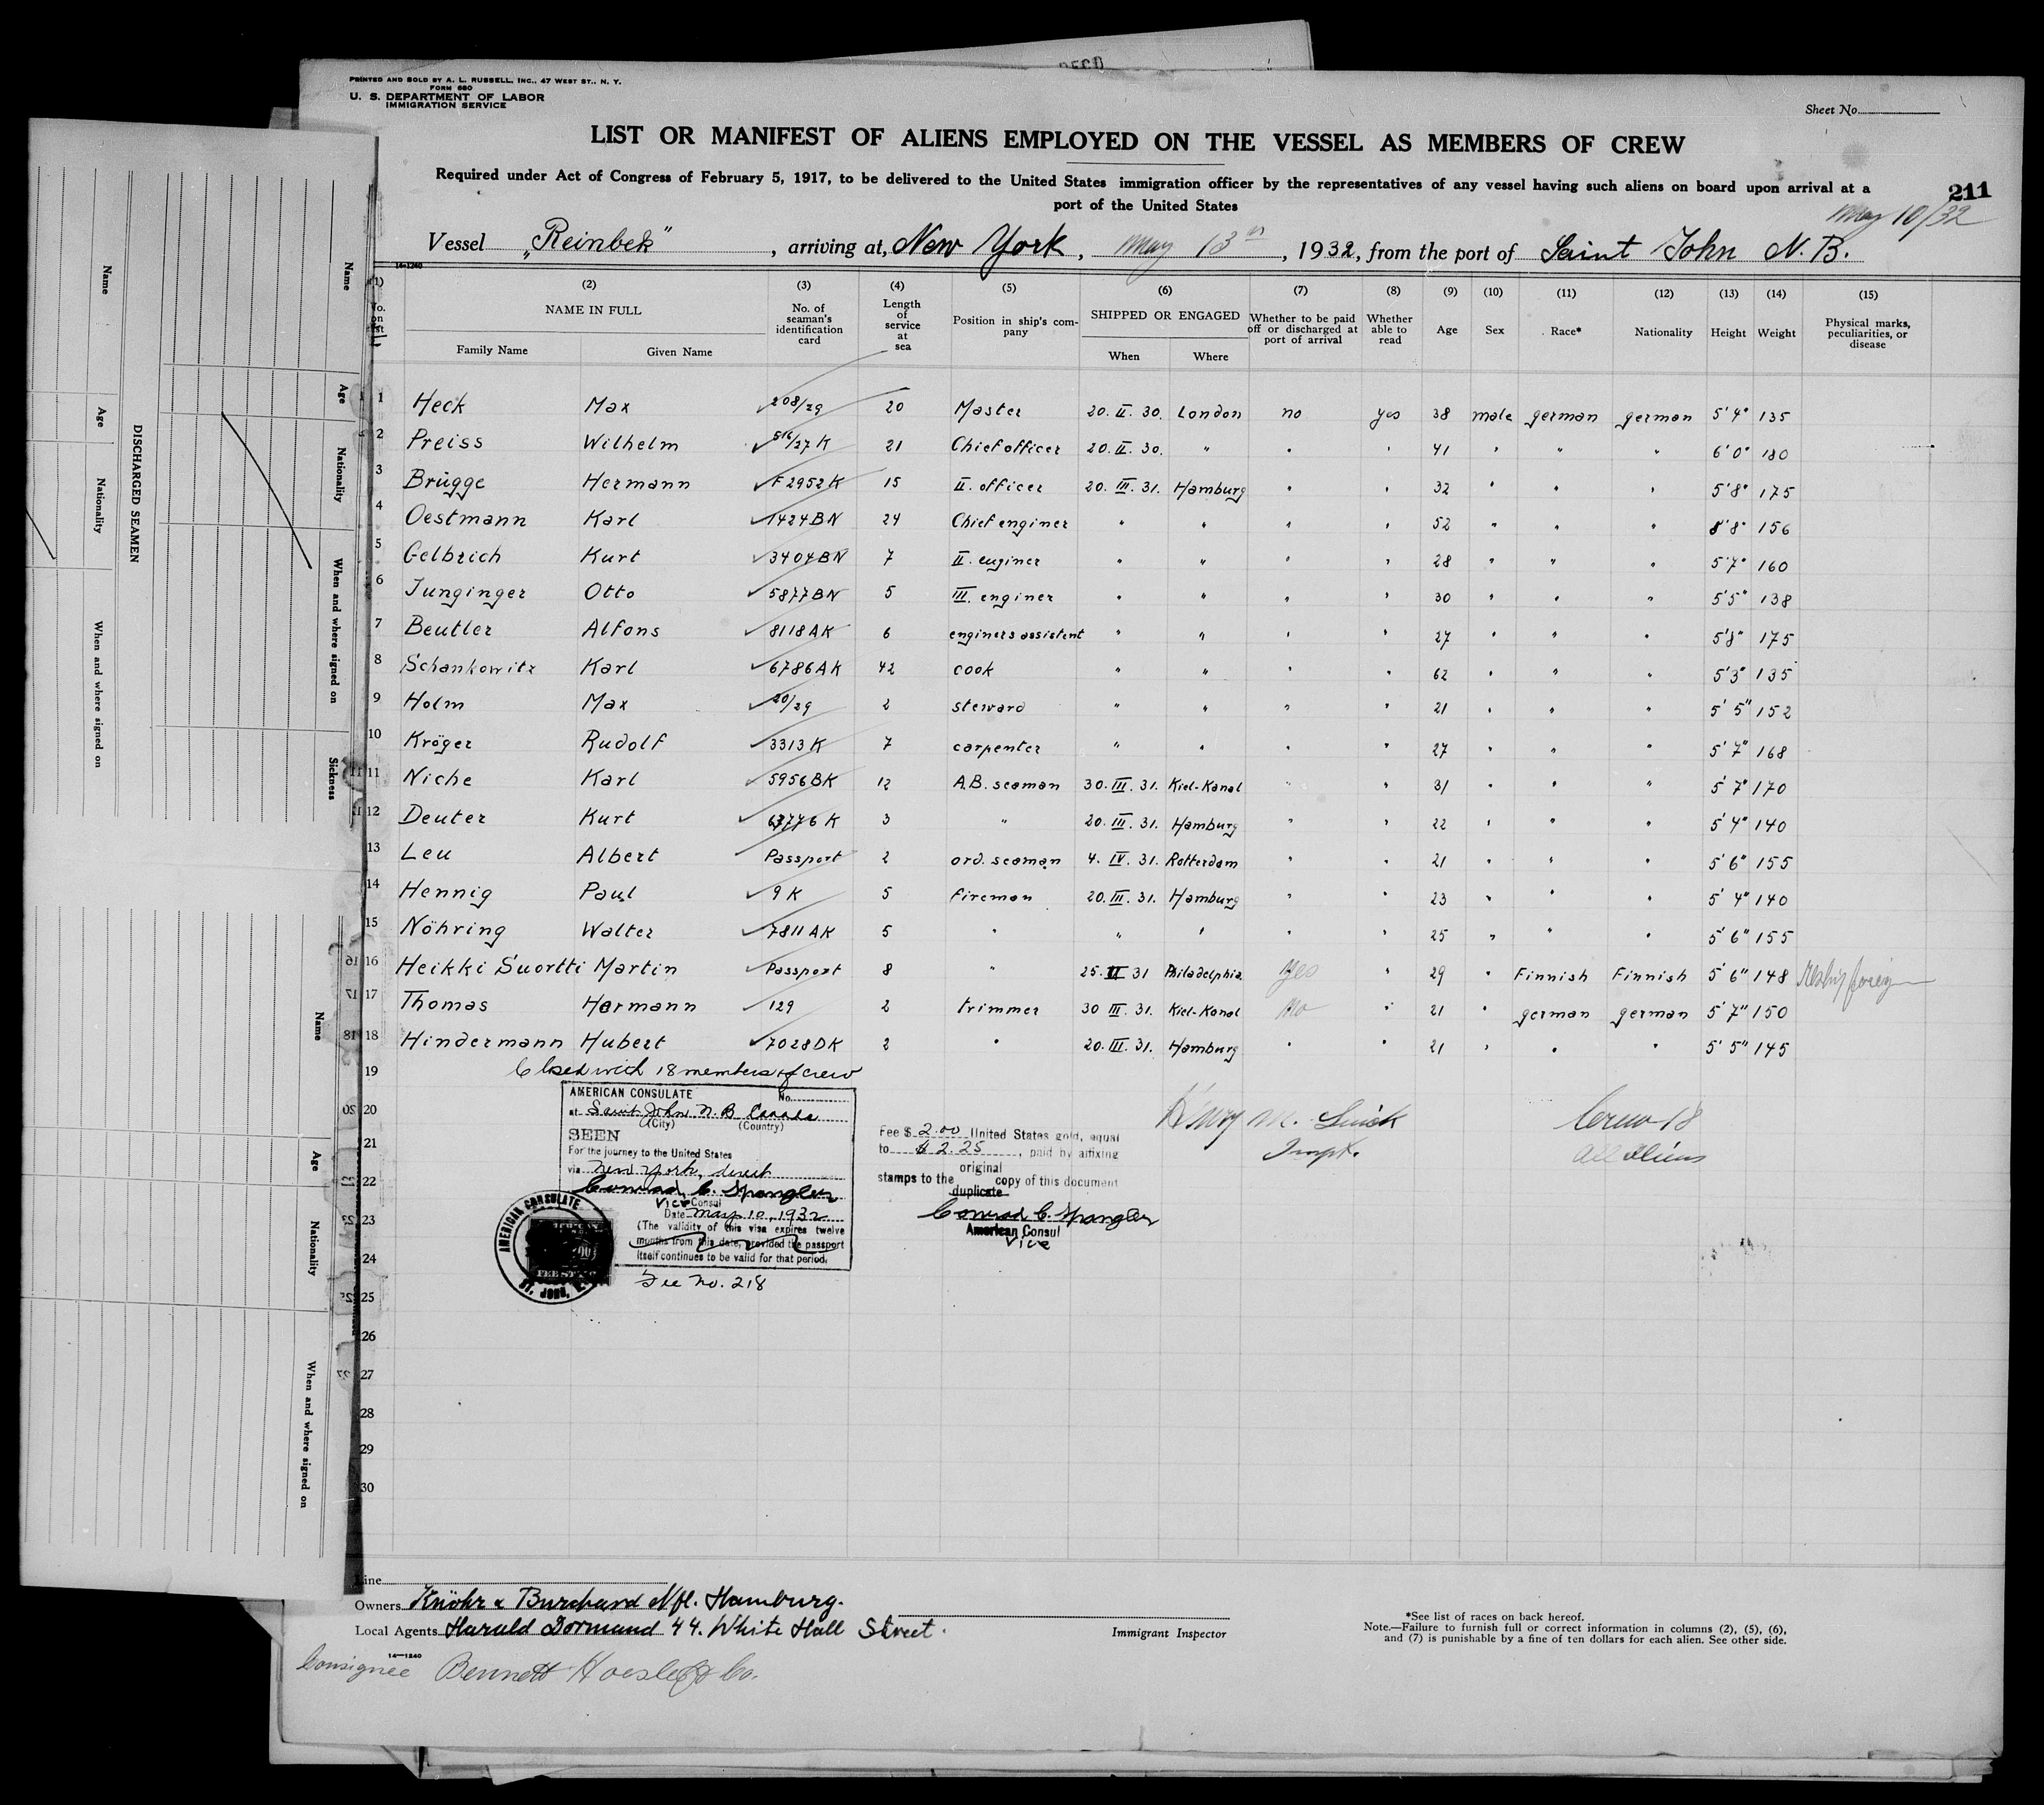 PRINTED AND SOLD BY A. L. RUSSELL, INC., 47 WEST ST., N. Y.
FORM 680
U. S. DEPARTMENT OF LABOR
IMMIGRATION SERVICE
Sheet No.
LIST OR MANIFEST OF ALIENS EMPLOYED ON THE VESSEL AS MEMBERS OF CREW
Required under Act of Congress of February 5, 1917, to be delivered to the United States immigration officer by the representatives of any vessel having such aliens on board upon arrival at a
port of the United States
211
May 10/32
Vessel „Reinbek", arriving at, New York, May 13th, 1932, from the port of Saint John N.B.
14-1240
(1) (2) (3) (4) (5) (6) (7) (8) (9) (10) (11) (12) (13) (14) (15)
No. on list NAME IN FULL Family Name Given Name No. of seaman's identification card Length of service at sea Position in ship's company SHIPPED OR ENGAGED When Where Whether to be paid off or discharged at port of arrival Whether able to read Age Sex Race* Nationality Height Weight Physical marks, peculiarities, or disease
1 Heck Max 208/29 20 Master 20. II. 30. London no yes 38 male german german 5'4" 135
2 Preiss Wilhelm 516/27 K 21 Chief officer 20. II. 30. " " " 41 " " " 6'0" 180
3 Brügge Hermann F2952K 15 II. officer 20. III. 31. Hamburg " " 32 " " " 5'8" 175
4 Oestmann Karl 1424BN 24 Chief enginer " " " " 52 " " " 8'8" 156
5 Gelbrich Kurt 3404BN 7 II. enginer " " " " 28 " " " 5'7" 160
6 Junginger Otto 5877BN 5 III. enginer " " " " 30 " " " 5'5" 138
7 Beutler Alfons 8118AK 6 enginers assistent " " " " 27 " " " 5'8" 175
8 Schankowitz Karl 6786AK 42 cook " " " " 62 " " " 5'3" 135
9 Holm Max 20/29 2 steward " " " " 21 " " " 5'5" 152
10 Kröger Rudolf 3313K 7 carpenter " " " " 27 " " " 5'7" 168
11 Niche Karl 5956BK 12 A.B. seaman 30. III. 31. Kiel-Kanal " " 31 " " " 5'7" 170
12 Deuter Kurt 63776K 3 " 20. III. 31. Hamburg " " 22 " " " 5'4" 140
13 Leu Albert Passport 2 ord. seaman 4. IV. 31. Rotterdam " " 21 " " " 5'6" 155
14 Hennig Paul 9K 5 fireman 20. III. 31. Hamburg " " 23 " " " 5'4" 140
15 Nöhring Walter 7811AK 5 " " " " " 25 " " " 5'6" 155
16 Heikki Suortti Martin Passport 8 " 25. VI 31 Philadelphia Yes " 29 " Finnish Finnish 5'6" 148 Reship foreign
17 Thomas Hermann 129 2 trimmer 30 III. 31. Kiel-Kanal No " 21 " german german 5'7" 150
18 Hindermann Hubert 7028DK 2 " 20. III. 31. Hamburg " " 21 " " " 5'5" 145
19 Closed with 18 members of crew
20
21
22
23
24
25
26
27
28
29
30
AMERICAN CONSULATE No.
at Saint John N.B. Canada
(City) (Country)
SEEN
For the journey to the United States
via New York, direct
Conrad C. Spangler
Vice Consul
Date May 10, 1932
(The validity of this visa expires twelve
months from this date, provided the passport
itself continues to be valid for that period.
Fee No. 218
AMERICAN CONSULATE
ST. JOHN, N.B.
Fee $ 2.00 United States gold, equal
to $ 2.25, paid by affixing
stamps to the original duplicate copy of this document
Conrad C. Spangler
American Consul
Vice
Henry M.
Inspt.
Crew 18
All Aliens
Line
Owners Knöhr & Burchard Nfl. Hamburg.
Local Agents Harald Dormand 44. White Hall Street.
Immigrant Inspector
*See list of races on back hereof.
Note.—Failure to furnish full or correct information in columns (2), (5), (6),
and (7) is punishable by a fine of ten dollars for each alien. See other side.
14—1240
Consignee Bennett & Co.
DISCHARGED SEAMEN
Name Age Nationality When and where signed on
Name Age Nationality When and where signed on Sickness
Name Age Nationality When and where signed on